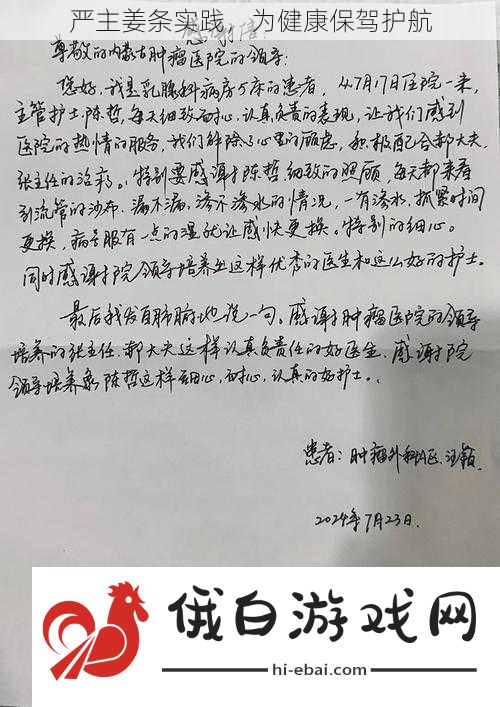 严主姜条实践，为健康保驾护航
感谢信
尊敬的内蒙古肿瘤医院的领导:
您好,我是乳腺科病房5床的患者,从7月17日住院一来,
主管护士陈哲,每天细致耐心,认真负责的表现,让我们感到
医院的热情的服务,我们解除了心里的顾虑,积极配合郝大夫.
张主任的治疗。特别要感谢陈哲细致的照顾,每天都来看
引流管的沙布.漏不漏,渗不渗水的情况,一有渗水,抓紧时间
更换,病号服有一点的湿就让感快更换。特别的细心。
同时感谢院领导培养出这样优秀的医生和这么好的护士。
最后我发自肺腑地说一句。感谢肿瘤医院的领导
培养的张主任.郝大夫这样认真负责任的好医生.感谢院
领导培养象陈哲这样细心,耐心,认真的好护士。
患者:肿瘤外科 区.汪颖
2024年7月23日.
俄白游戏网
hi-ebai.com